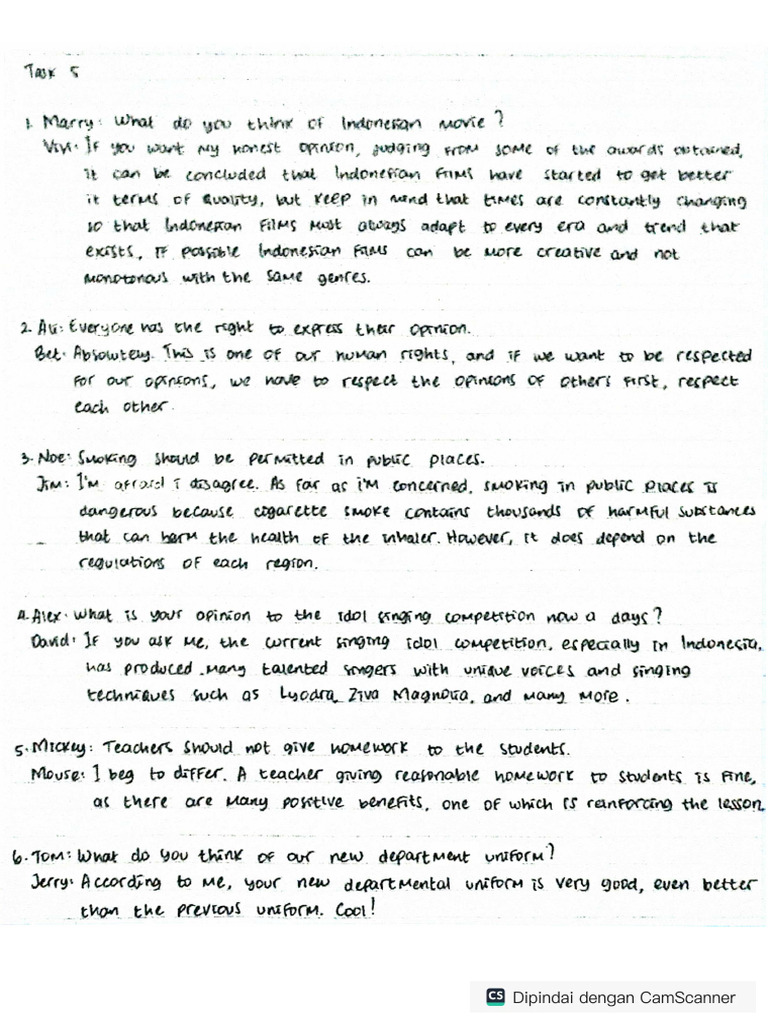 Task 5
1. Marry: What do you think of Indonesian movie?
Vivi: If you want my honest opinion, judging from some of the awards obtained,
it can be concluded that Indonesian films have started to get better
it terms of quality, but keep in mind that times are constantly changing
so that Indonesian films must always adapt to every era and trend that
exists, if possible Indonesian films can be more creative and not
monotonous with the same genres.
2. Ali: Everyone has the right to express their opinion.
Bet: Absolutely. This is one of our human rights, and if we want to be respected
for our opinions, we have to respect the opinions of others first, respect
each other.
3. Noe: Smoking should be permitted in public places.
Jim: I'm afraid i disagree. As far as i'm concerned, smoking in public places is
dangerous because cigarette smoke contains thousands of harmful substances
that can harm the health of the inhaler. However, it does depend on the
regulations of each region.
4. Alex: What is your opinion to the idol singing competition now a days?
David: If you ask me, the current singing idol competition, especially in Indonesia,
has produced many talented singers with unique voices and singing
techniques such as Lyodra, Ziva Magnolia, and many more.
5. Mickey: Teachers should not give homework to the students.
Mouse: I beg to differ. A teacher giving reasonable homework to students is fine,
as there are many positive benefits, one of which is reinforcing the lesson
6. Tom: What do you think of our new department uniform?
Jerry: According to me, your new departmental uniform is very good, even better
than the previous uniform. Cool!
CS Dipindai dengan CamScanner